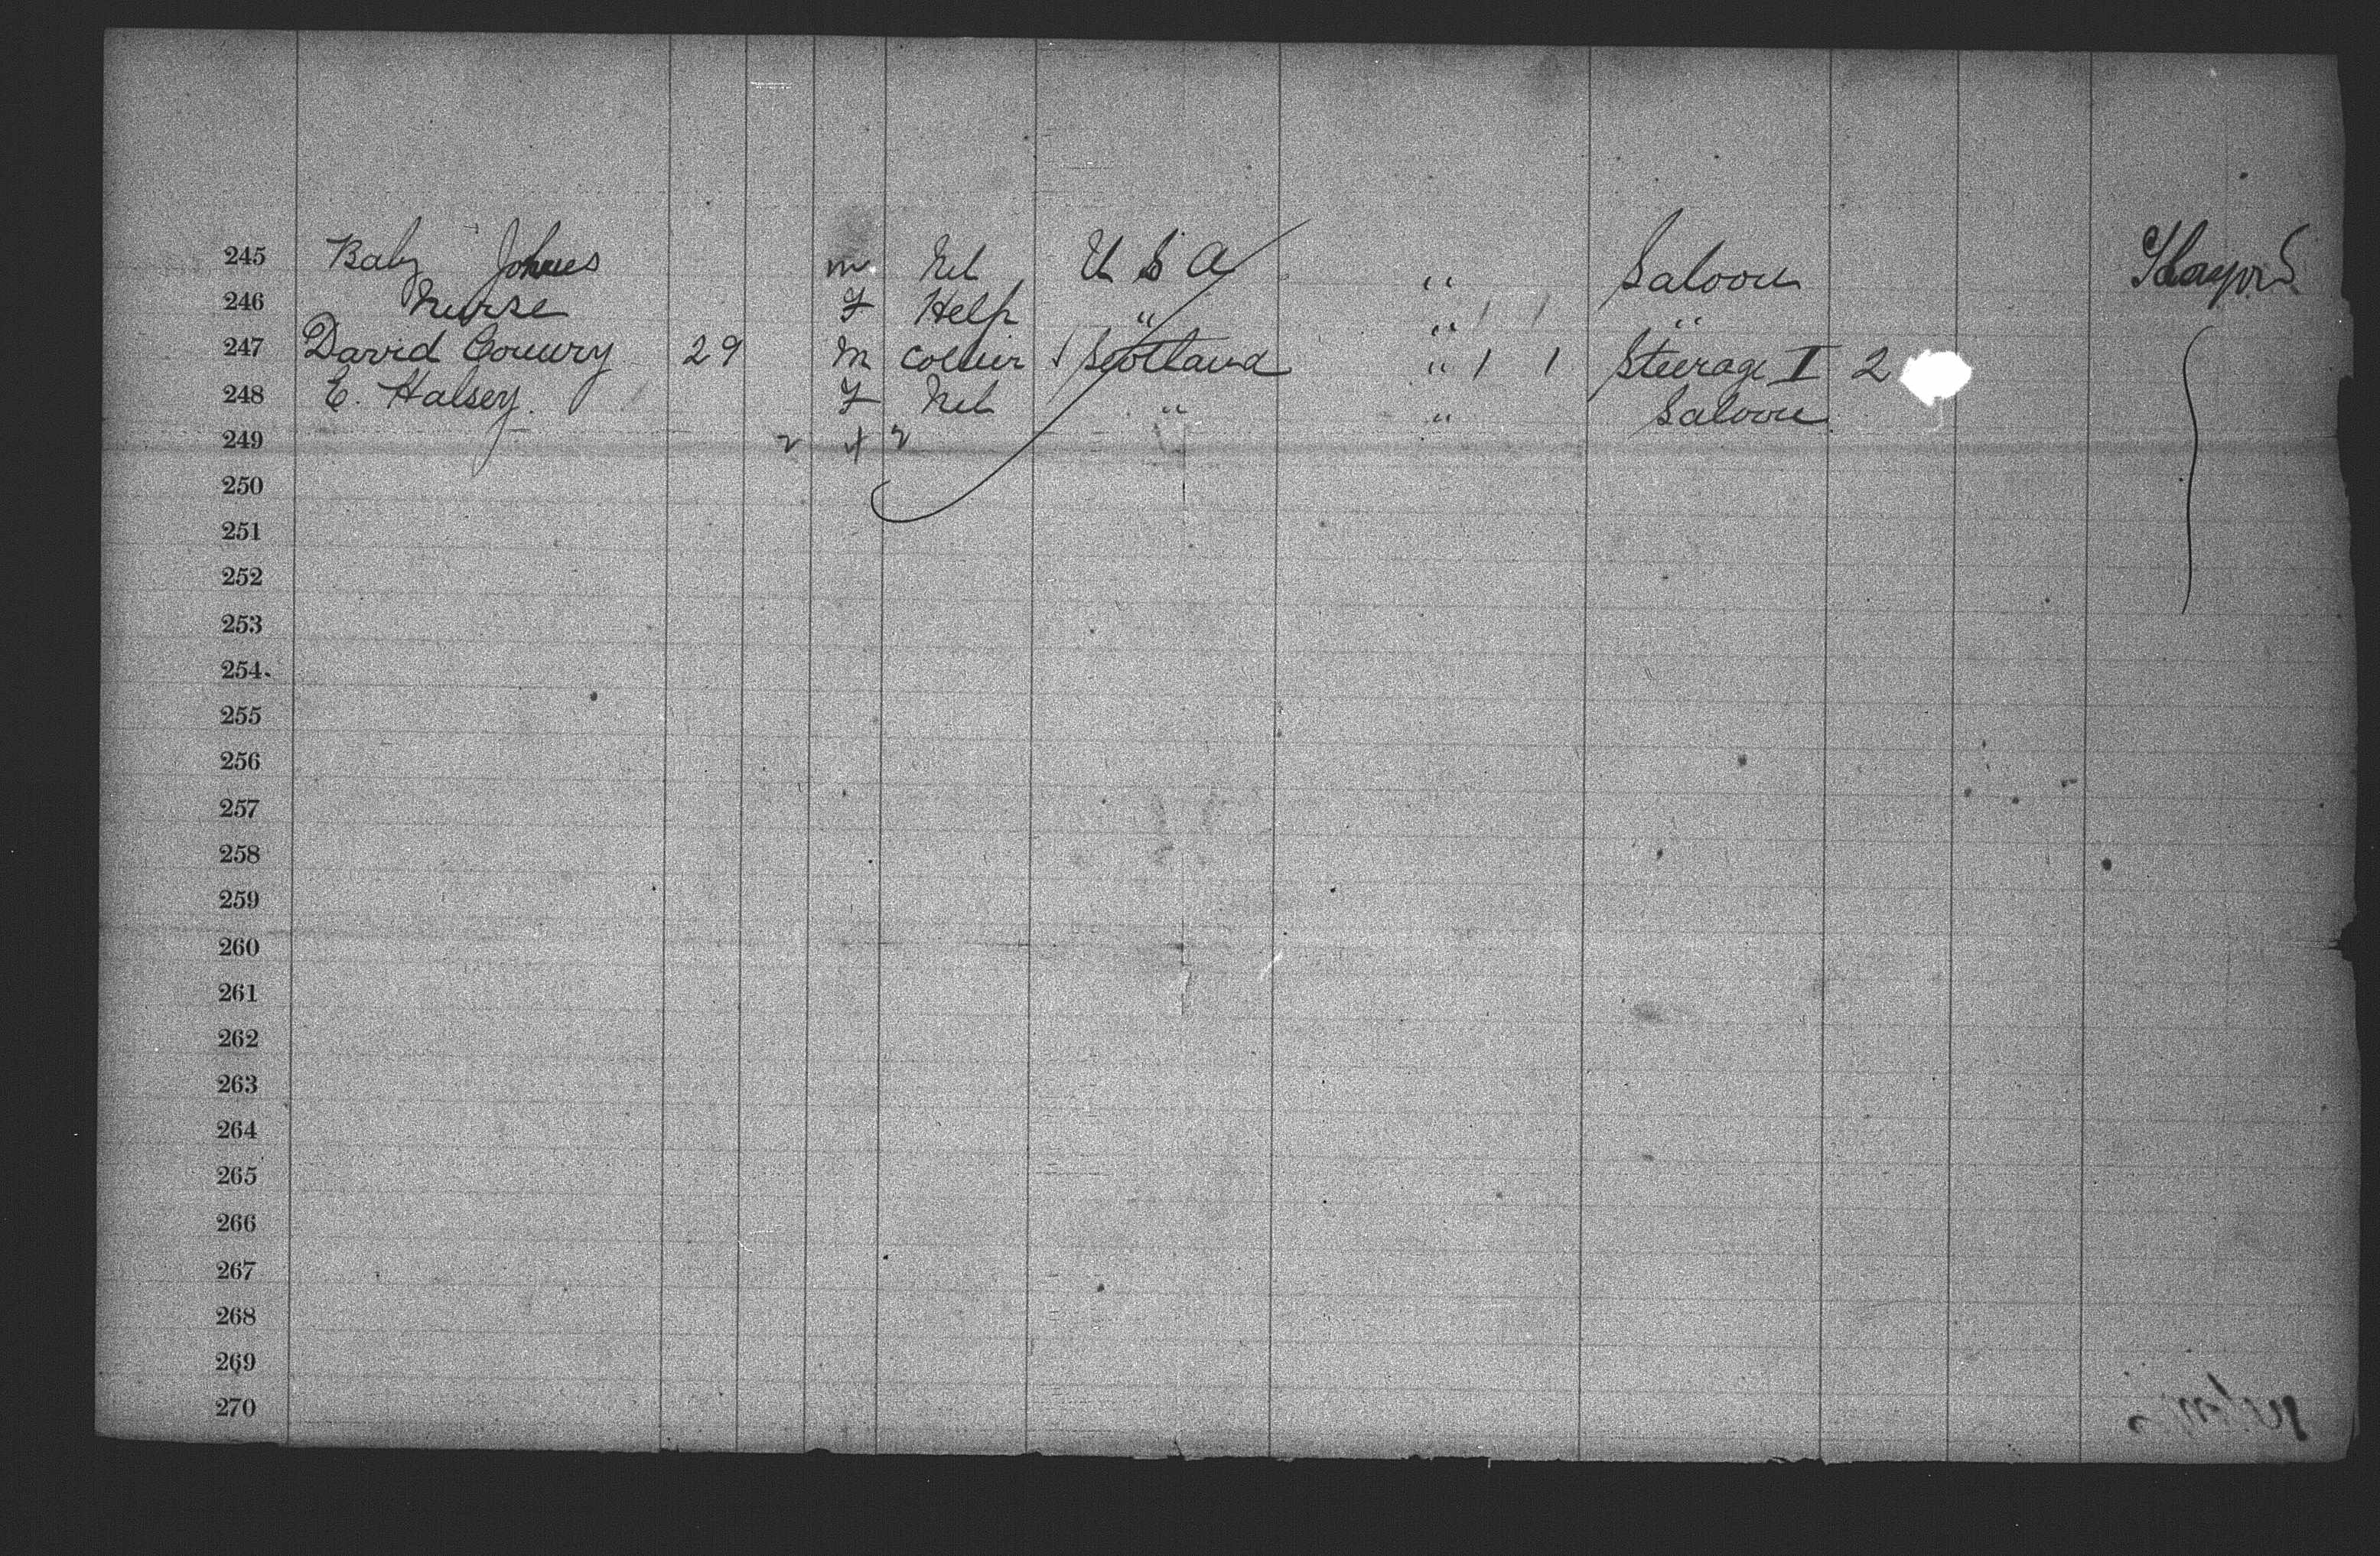 245 Baby Johnes m Nil U S A " Saloon
246 Nurse F Help " " "
247 David Conwry 29 m Collier Scotland " 1 1 Steerage I 2
248 E. Halsey. F Nil " " Saloon
249
250
251
252
253
254.
255
256
257
258
259
260
261
262
263
264
265
266
267
268
269
270